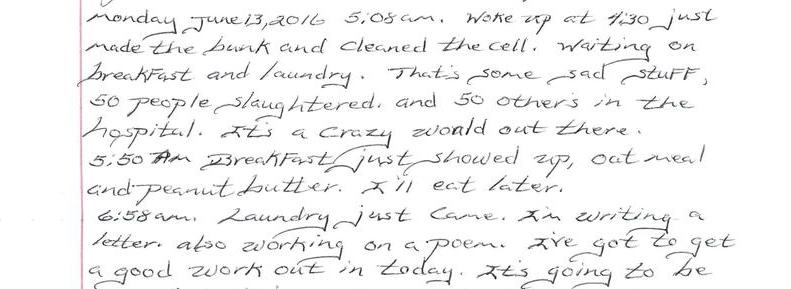 Monday June 13, 2016 5:08 am. Woke up at 4:30 just
made the bunk and cleaned the cell. Waiting on
breakfast and laundry. That's some sad stuff,
50 people slaughtered. and 50 others in the
hospital. It's a crazy would out there.
5:50 Am Breakfast just showed up, oat meal
and peanut butter. I'll eat later.
6:58 am. Laundry just came. I'm writing a
letter. also working on a poem. I've got to get
a good work out in today. It's going to be